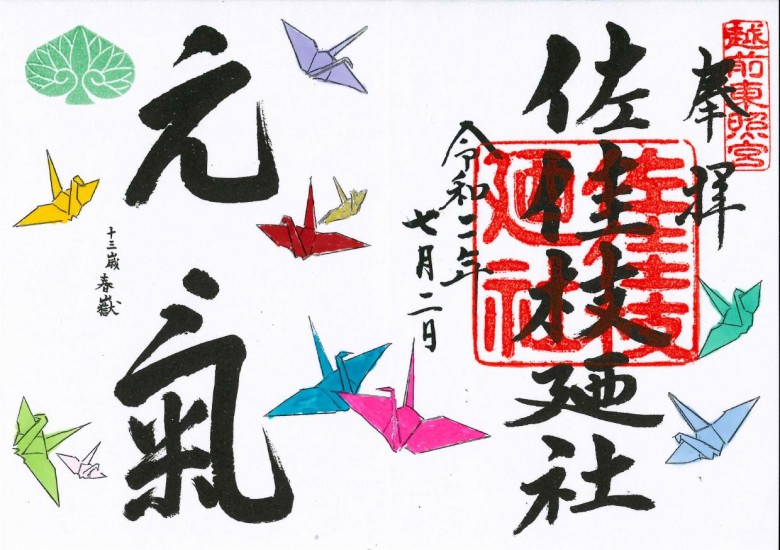 越前東照宮
奉拝
佐佳枝廼社
佐佳枝廼社
令和二年
七月二日
元氣
十三歳 春嶽